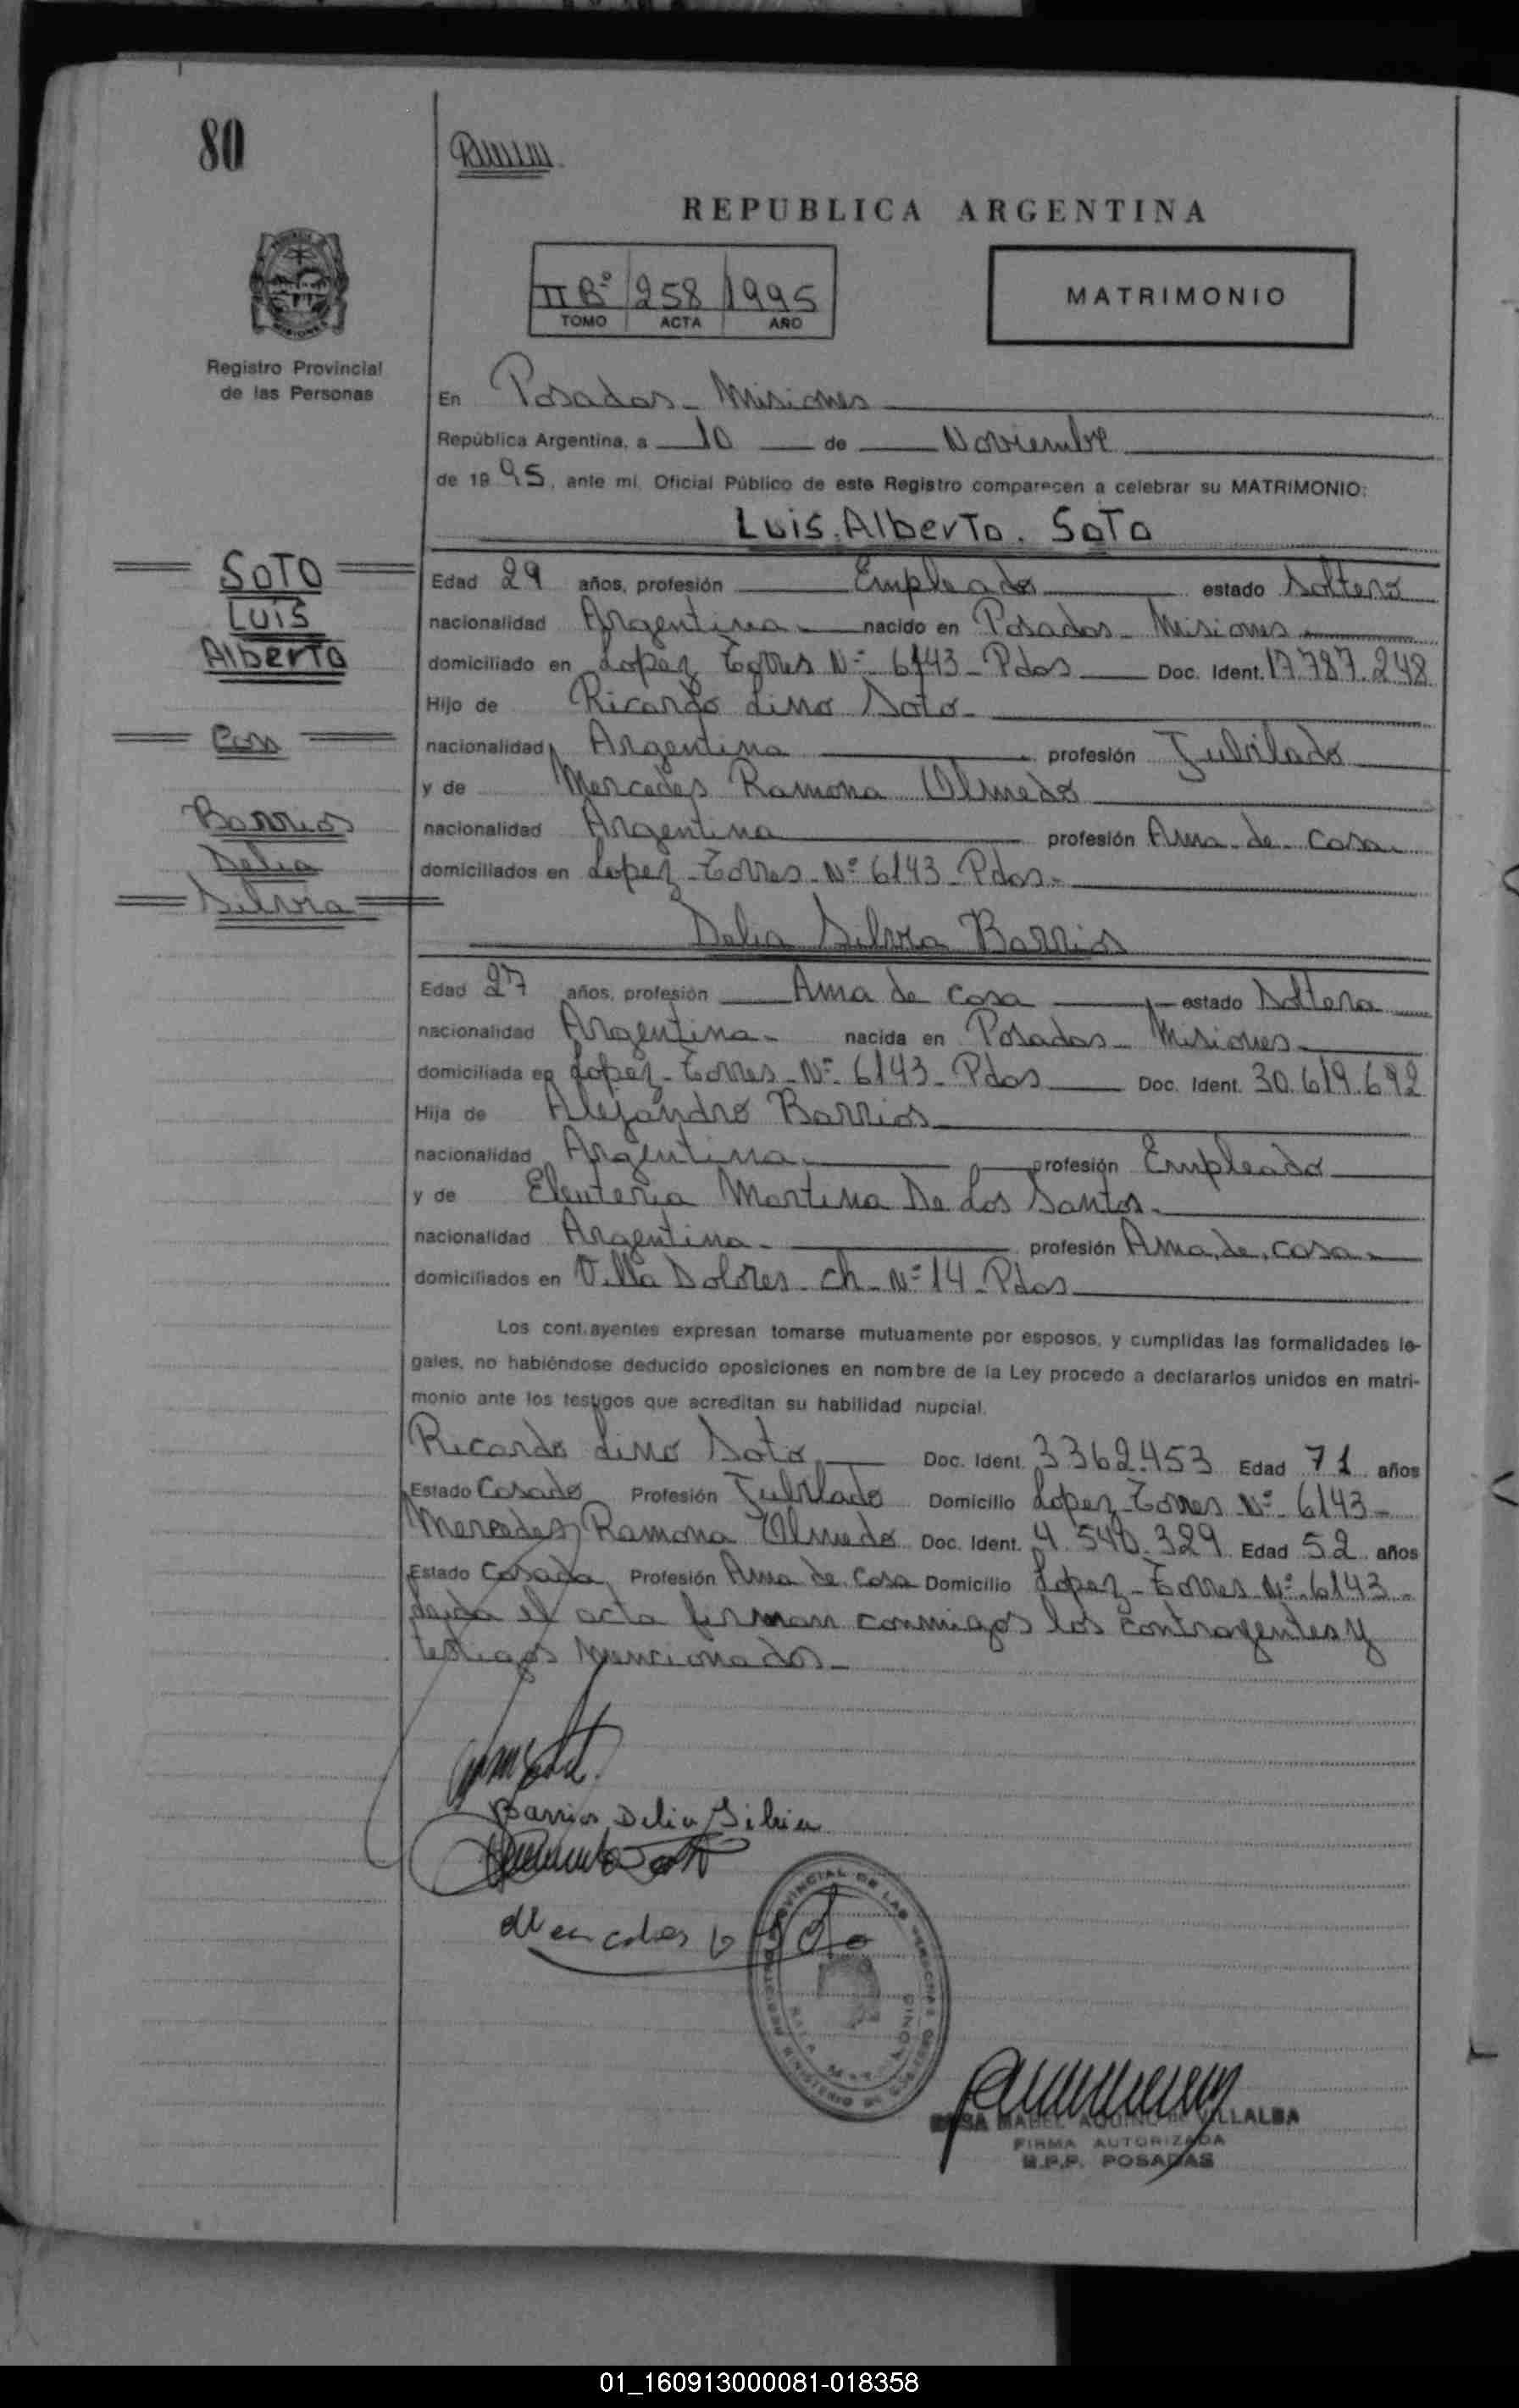 80
REPUBLICA ARGENTINA
II Bº 258 1995
TOMO ACTA AÑO
MATRIMONIO
Registro Provincial
de las Personas
En Posadas - Misiones
República Argentina, a 10 de Noviembre
de 1995, ante mí, Oficial Público de este Registro comparecen a celebrar su MATRIMONIO:
Luis Alberto Soto
SOTO
LUIS
Alberto
Con
Barrios
Delia
Silvia
Edad 29 años, profesión Empleado estado Soltero
nacionalidad Argentina nacido en Posadas - Misiones
domiciliado en Lopez Torres Nº 6143 - Pdas Doc. Ident. 17.787.248
Hijo de Ricardo Lino Soto
nacionalidad Argentina profesión Jubilado
y de Mercedes Ramona Olmedo
nacionalidad Argentina profesión Ama de casa
domiciliados en Lopez - Torres - Nº 6143 - Pdas -
Delia Silvia Barrios
Edad 27 años, profesión Ama de casa estado Soltera
nacionalidad Argentina - nacida en Posadas - Misiones -
domiciliada en Lopez - Torres - Nº 6143 - Pdas Doc. Ident. 30.619.692
Hija de Alejandro Barrios
nacionalidad Argentina profesión Empleado
y de Eleuteria Martina De Los Santos -
nacionalidad Argentina - profesión Ama de casa -
domiciliados en Villa Dolores - ch - Nº 14 - Pdas
Los contrayentes expresan tomarse mutuamente por esposos, y cumplidas las formalidades le-
gales, no habiéndose deducido oposiciones en nombre de la Ley procedo a declararlos unidos en matri-
monio ante los testigos que acreditan su habilidad nupcial.
Ricardo Lino Soto Doc. Ident. 3362.453 Edad 71 años
Estado Casado Profesión Jubilado Domicilio Lopez - Torres Nº 6143 -
Mercedes Ramona Olmedo Doc. Ident. 4.540.329 Edad 52 años
Estado Casada Profesión Ama de Casa Domicilio Lopez - Torres Nº 6143 -
leida el acta firman conmigos los contrayentes y
testigos mencionados -
Barrios Delia Silvia
PROVINCIAL DE LAS PERSONAS
MABEL AQUINO de VILLALBA
FIRMA AUTORIZADA
R.P.P. POSADAS
01_160913000081-018358